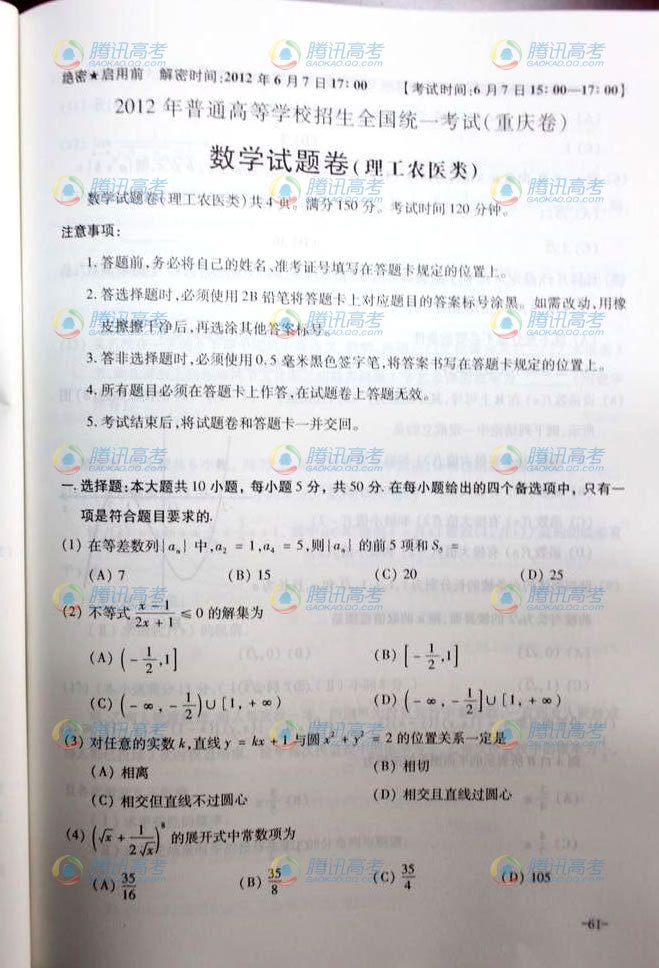 绝密★启用前 解密时间:2012年6月7日17:00 【考试时间:6月7日15:00—17:00】
2012年普通高等学校招生全国统一考试(重庆卷)
数学试题卷(理工农医类)
数学试题卷(理工农医类)共4页。满分150分。考试时间120分钟。
注意事项:
1.答题前,务必将自己的姓名、准考证号填写在答题卡规定的位置上。
2.答选择题时,必须使用2B铅笔将答题卡上对应题目的答案标号涂黑。如需改动,用橡
皮擦擦干净后,再选涂其他答案标号。
3.答非选择题时,必须使用0.5毫米黑色签字笔,将答案书写在答题卡规定的位置上。
4.所有题目必须在答题卡上作答,在试题卷上答题无效。
5.考试结束后,将试题卷和答题卡一并交回。
一.选择题:本大题共10小题,每小题5分,共50分.在每小题给出的四个备选项中,只有一
项是符合题目要求的.
(1) 在等差数列{aₙ}中,a₂ = 1,a₄ = 5,则{aₙ}的前5项和S₅ =
(A) 7 (B) 15 (C) 20 (D) 25
(2) 不等式 (x − 1)/(2x + 1) ≤ 0 的解集为
(A) (−1/2,1] (B) [−1/2,1]
(C) (−∞,−1/2)∪[1,+∞) (D) (−∞,−1/2]∪[1,+∞)
(3) 对任意的实数k,直线y = kx + 1与圆x² + y² = 2的位置关系一定是
(A) 相离 (B) 相切
(C) 相交但直线不过圆心 (D) 相交且直线过圆心
(4) (√x + 1/(2√x))⁸ 的展开式中常数项为
(A) 35/16 (B) 35/8 (C) 35/4 (D) 105
-61-
腾讯高考
GAOKAO.QQ.COM